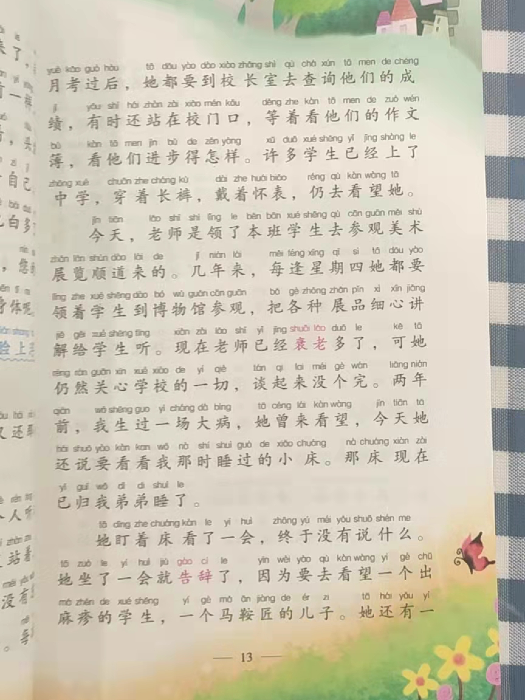 yuè kǎo guò hòu tā dōu yào dào xiào zhǎng shì qù chá xún tā men de chéng
月考过后，她都要到校长室去查询他们的成
jì yǒu shí hái zhàn zài xiào mén kǒu děng zhe kàn tā men de zuò wén
绩，有时还站在校门口，等着看他们的作文
bù kàn tā men jìn bù de zěn yàng xǔ duō xué shēng yǐ jīng shàng le
簿，看他们进步得怎样。许多学生已经上了
zhōng xué chuān zhe cháng kù dài zhe huái biǎo réng qù kàn wàng tā
中学，穿着长裤，戴着怀表，仍去看望她。
jīn tiān lǎo shī shì lǐng le běn bān xué shēng qù cān guān měi shù
今天，老师是领了本班学生去参观美术
zhǎn lǎn shùn dào lái de jǐ nián lái měi féng xīng qī sì tā dōu yào
展览顺道来的。几年来，每逢星期四她都要
lǐng zhe xué shēng dào bó wù guǎn cān guān bǎ gè zhǒng zhǎn pǐn xì xīn jiǎng
领着学生到博物馆参观，把各种展品细心讲
jiě gěi xué shēng tīng xiàn zài lǎo shī yǐ jīng shuāi lǎo duō le kě tā
解给学生听。现在老师已经衰老多了，可她
réng rán guān xīn xué xiào de yí qiè tán qǐ lái méi gè wán liǎng nián
仍然关心学校的一切，谈起来没个完。两年
qián wǒ shēng guo yì cháng dà bìng tā céng lái kàn wàng jīn tiān tā
前，我生过一场大病，她曾来看望，今天她
hái shuō yào kàn kan wǒ nà shí shuì guò de xiǎo chuáng nà chuáng xiàn zài
还说要看看我那时睡过的小床。那床现在
yǐ guī wǒ dì di shuì le
已归我弟弟睡了。
tā dīng zhe chuáng kàn le yí huì zhōng yú méi yǒu shuō shén me
她盯着床看了一会，终于没有说什么。
tā zuò le yí huì jiù gào cí le yīn wèi yào qù kàn wàng yí gè chū
她坐了一会就告辞了，因为要去看望一个出
má zhěn de xué shēng yí gè mǎ ān jiàng de ér zi tā hái yǒu yì
麻疹的学生，一个马鞍匠的儿子。她还有一
13